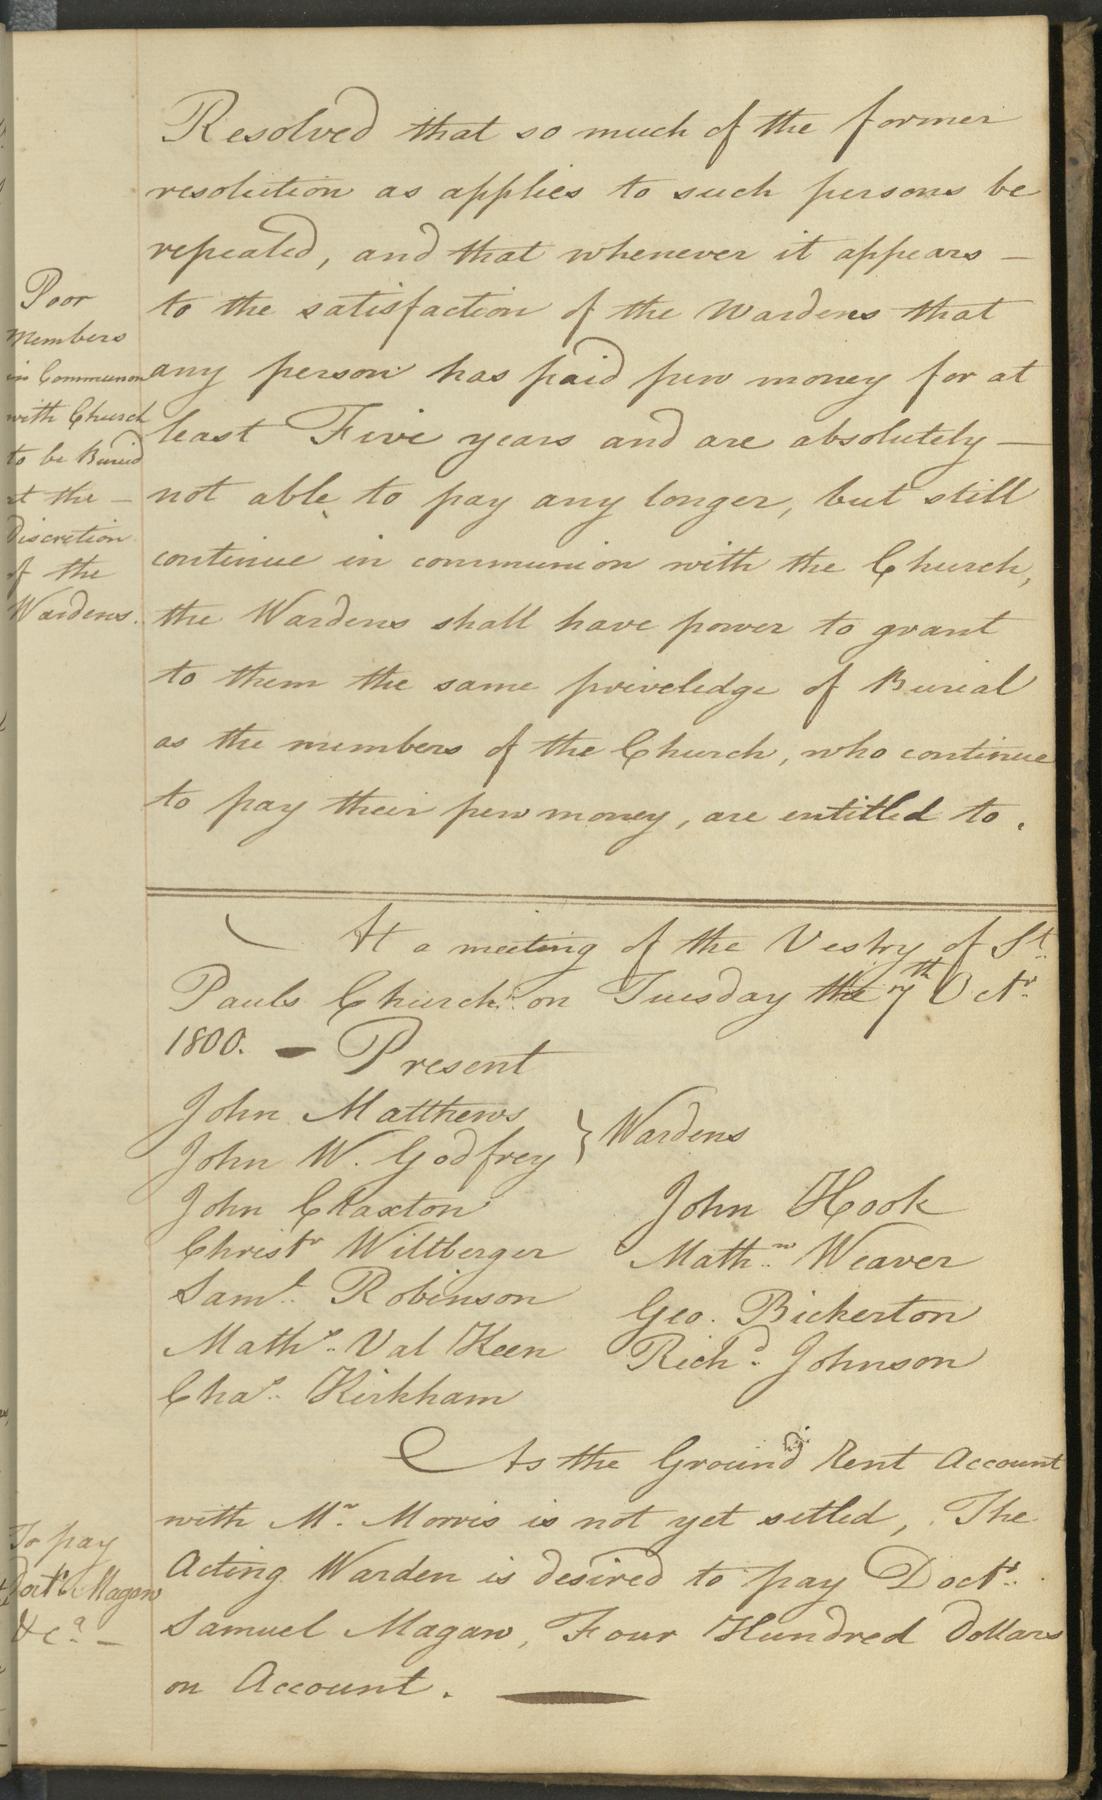 Resolved that so much of the former
resolution as applies to such persons be
repealed, and that whenever it appears —
to the satisfaction of the Wardens that
any person has paid pew money for at
least Five years and are absolutely —
not able to pay any longer, but still
continue in communion with the Church,
the Wardens shall have power to grant
to them the same priveledge of Burial
as the members of the Church, who continue
to pay their pew money, are entitled to.
Poor
Members
in Communon
with Church
to be Buried
at the —
Discretion
of the
Wardens.
At a meeting of the Vestry of St.
Pauls Church on Tuesday the 7th Octr.
1800. — Present
John Matthews
John W. Godfrey } Wardens
John Claxton
Christr Wiltberger
Saml. Robinson
Maths. Val Keen
Chas. Kirkham
John Hook
Mathw. Weaver
Geo. Bickerton
Richd. Johnson
As the Ground Rent Account
with Mr. Morris is not yet setled, The
Acting Warden is desired to pay Doctr.
Samuel Magaw, Four Hundred Dollars
on Account. —
To pay
Doctr. Magaw
&ca. —